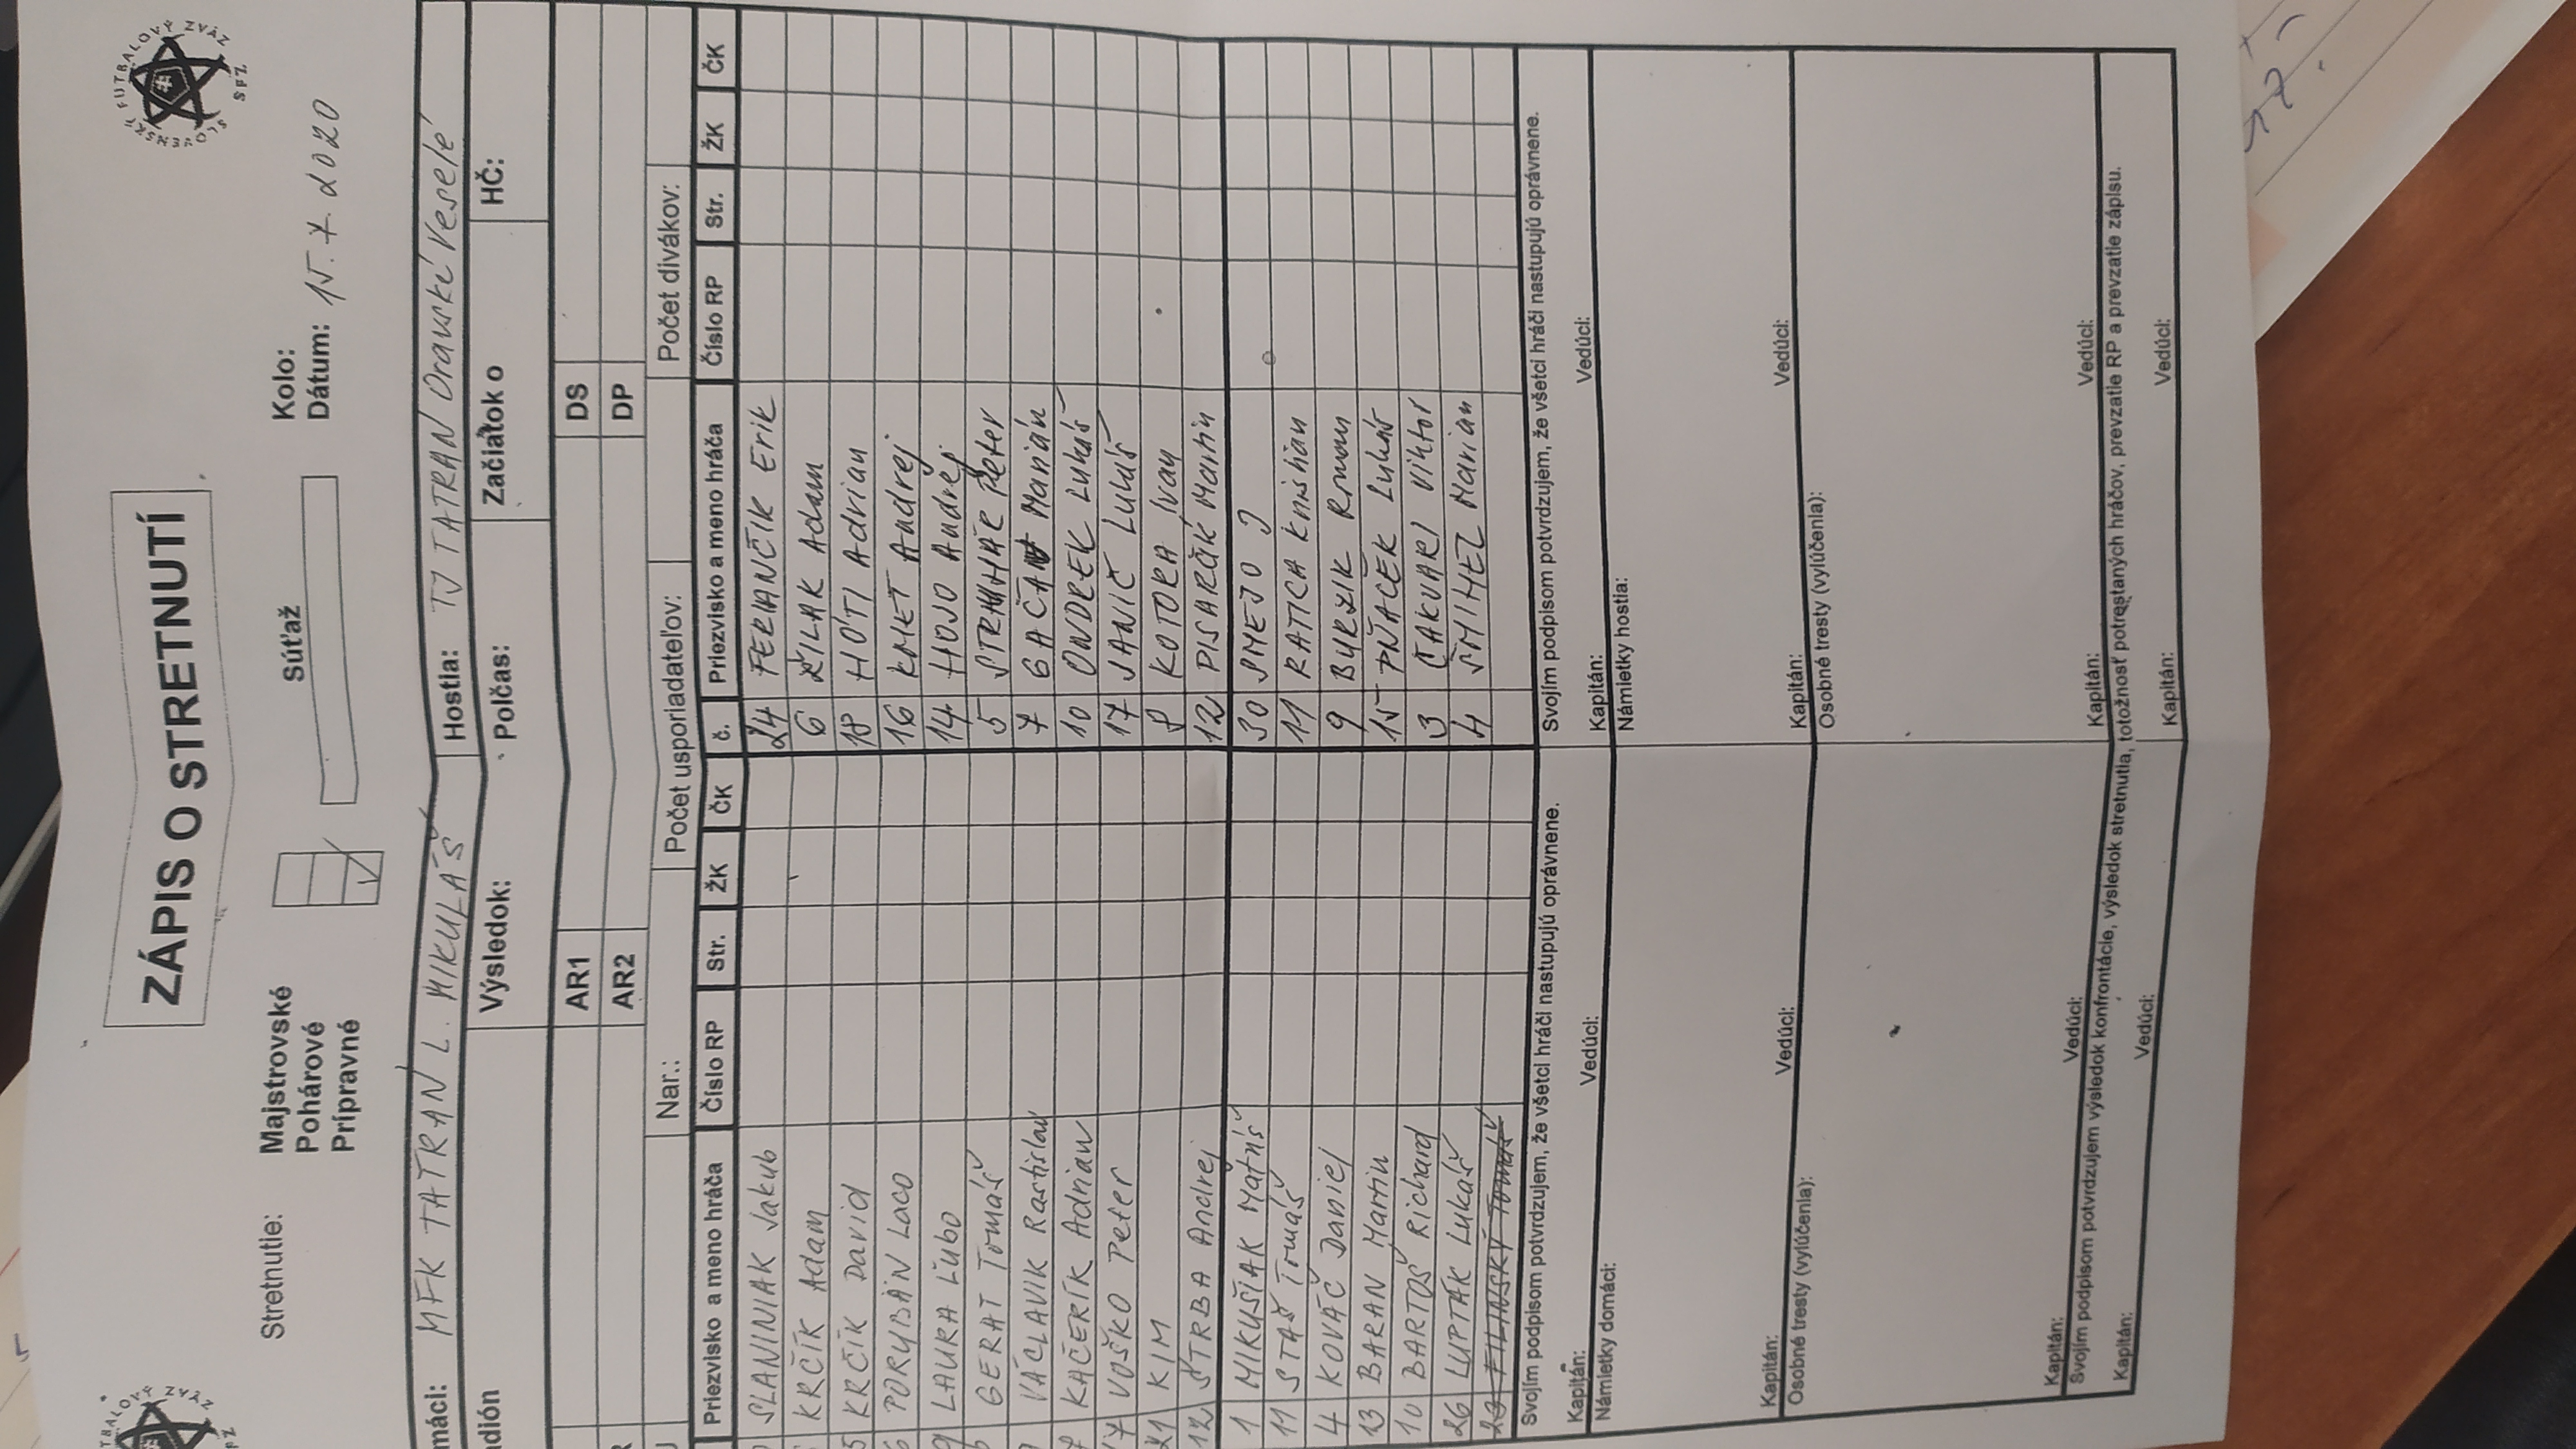 SLOVENSKÝ FUTBALOVÝ ZVÄZ
SFZ
ZÁPIS O STRETNUTÍ
Stretnutie: Majstrovské Súťaž Kolo:
Pohárové Dátum: 15. 7. 2020
Prípravné
máci: MFK TATRAN L. MIKULÁŠ Hostia: TJ TATRAN Oravské Veselé
dión Výsledok: Polčas: Začiatok o HČ:
AR1 DS
AR2 DP
Nar.: Počet usporiadateľov: Počet divákov:
Priezvisko a meno hráča Číslo RP Str. ŽK ČK č. Priezvisko a meno hráča Číslo RP Str. ŽK ČK
SLANINIAK Jakub 24 FERIANČÍK Erik
KRČÍK Adam 6 ŽILAK Adam
KRČÍK David 18 HÓTI Adrian
PORYBÄN Laco 16 KMEŤ Andrej
LAURA Ľubo 14 HOJO Andrej
GERÁT Tomáš 5 Peter
VÁCLAVIK Rastislav 7 Marián
KAČERÍK Adrian 10 ONDREK Lukáš
VOŠKO Peter 17 JANIČ Lukáš
21 KIM 8 KOTORA Ivan
12 ŠTRBA Andrej 12 PISARČÍK Martin
1 MIKUŠIAK Matúš 30 SMEJO J
11 STAŠ Tomáš 11 RATICA Kristián
4 KOVÁČ Daniel 9 BURZIK Roman
13 BARAN Martin 15 PŇAČEK Lukáš
10 BARTOŠ Richard 3 ČAKVARI Viktor
26 LUPTÁK Lukáš 4 Marian
23 FILINSKÝ Tomáš
Svojím podpisom potvrdzujem, že všetci hráči nastupujú oprávnene. Svojím podpisom potvrdzujem, že všetci hráči nastupujú oprávnene.
Kapitán: Vedúci: Kapitán: Vedúci:
Námietky domáci: Námietky hostia:
Kapitán: Vedúci: Kapitán: Vedúci:
Osobné tresty (vylúčenia): Osobné tresty (vylúčenia):
Kapitán: Vedúci: Kapitán: Vedúci:
Svojím podpisom potvrdzujem výsledok konfrontácie, výsledok stretnutia, totožnosť potrestaných hráčov, prevzatie RP a prevzatie zápisu.
Kapitán: Vedúci: Kapitán: Vedúci: